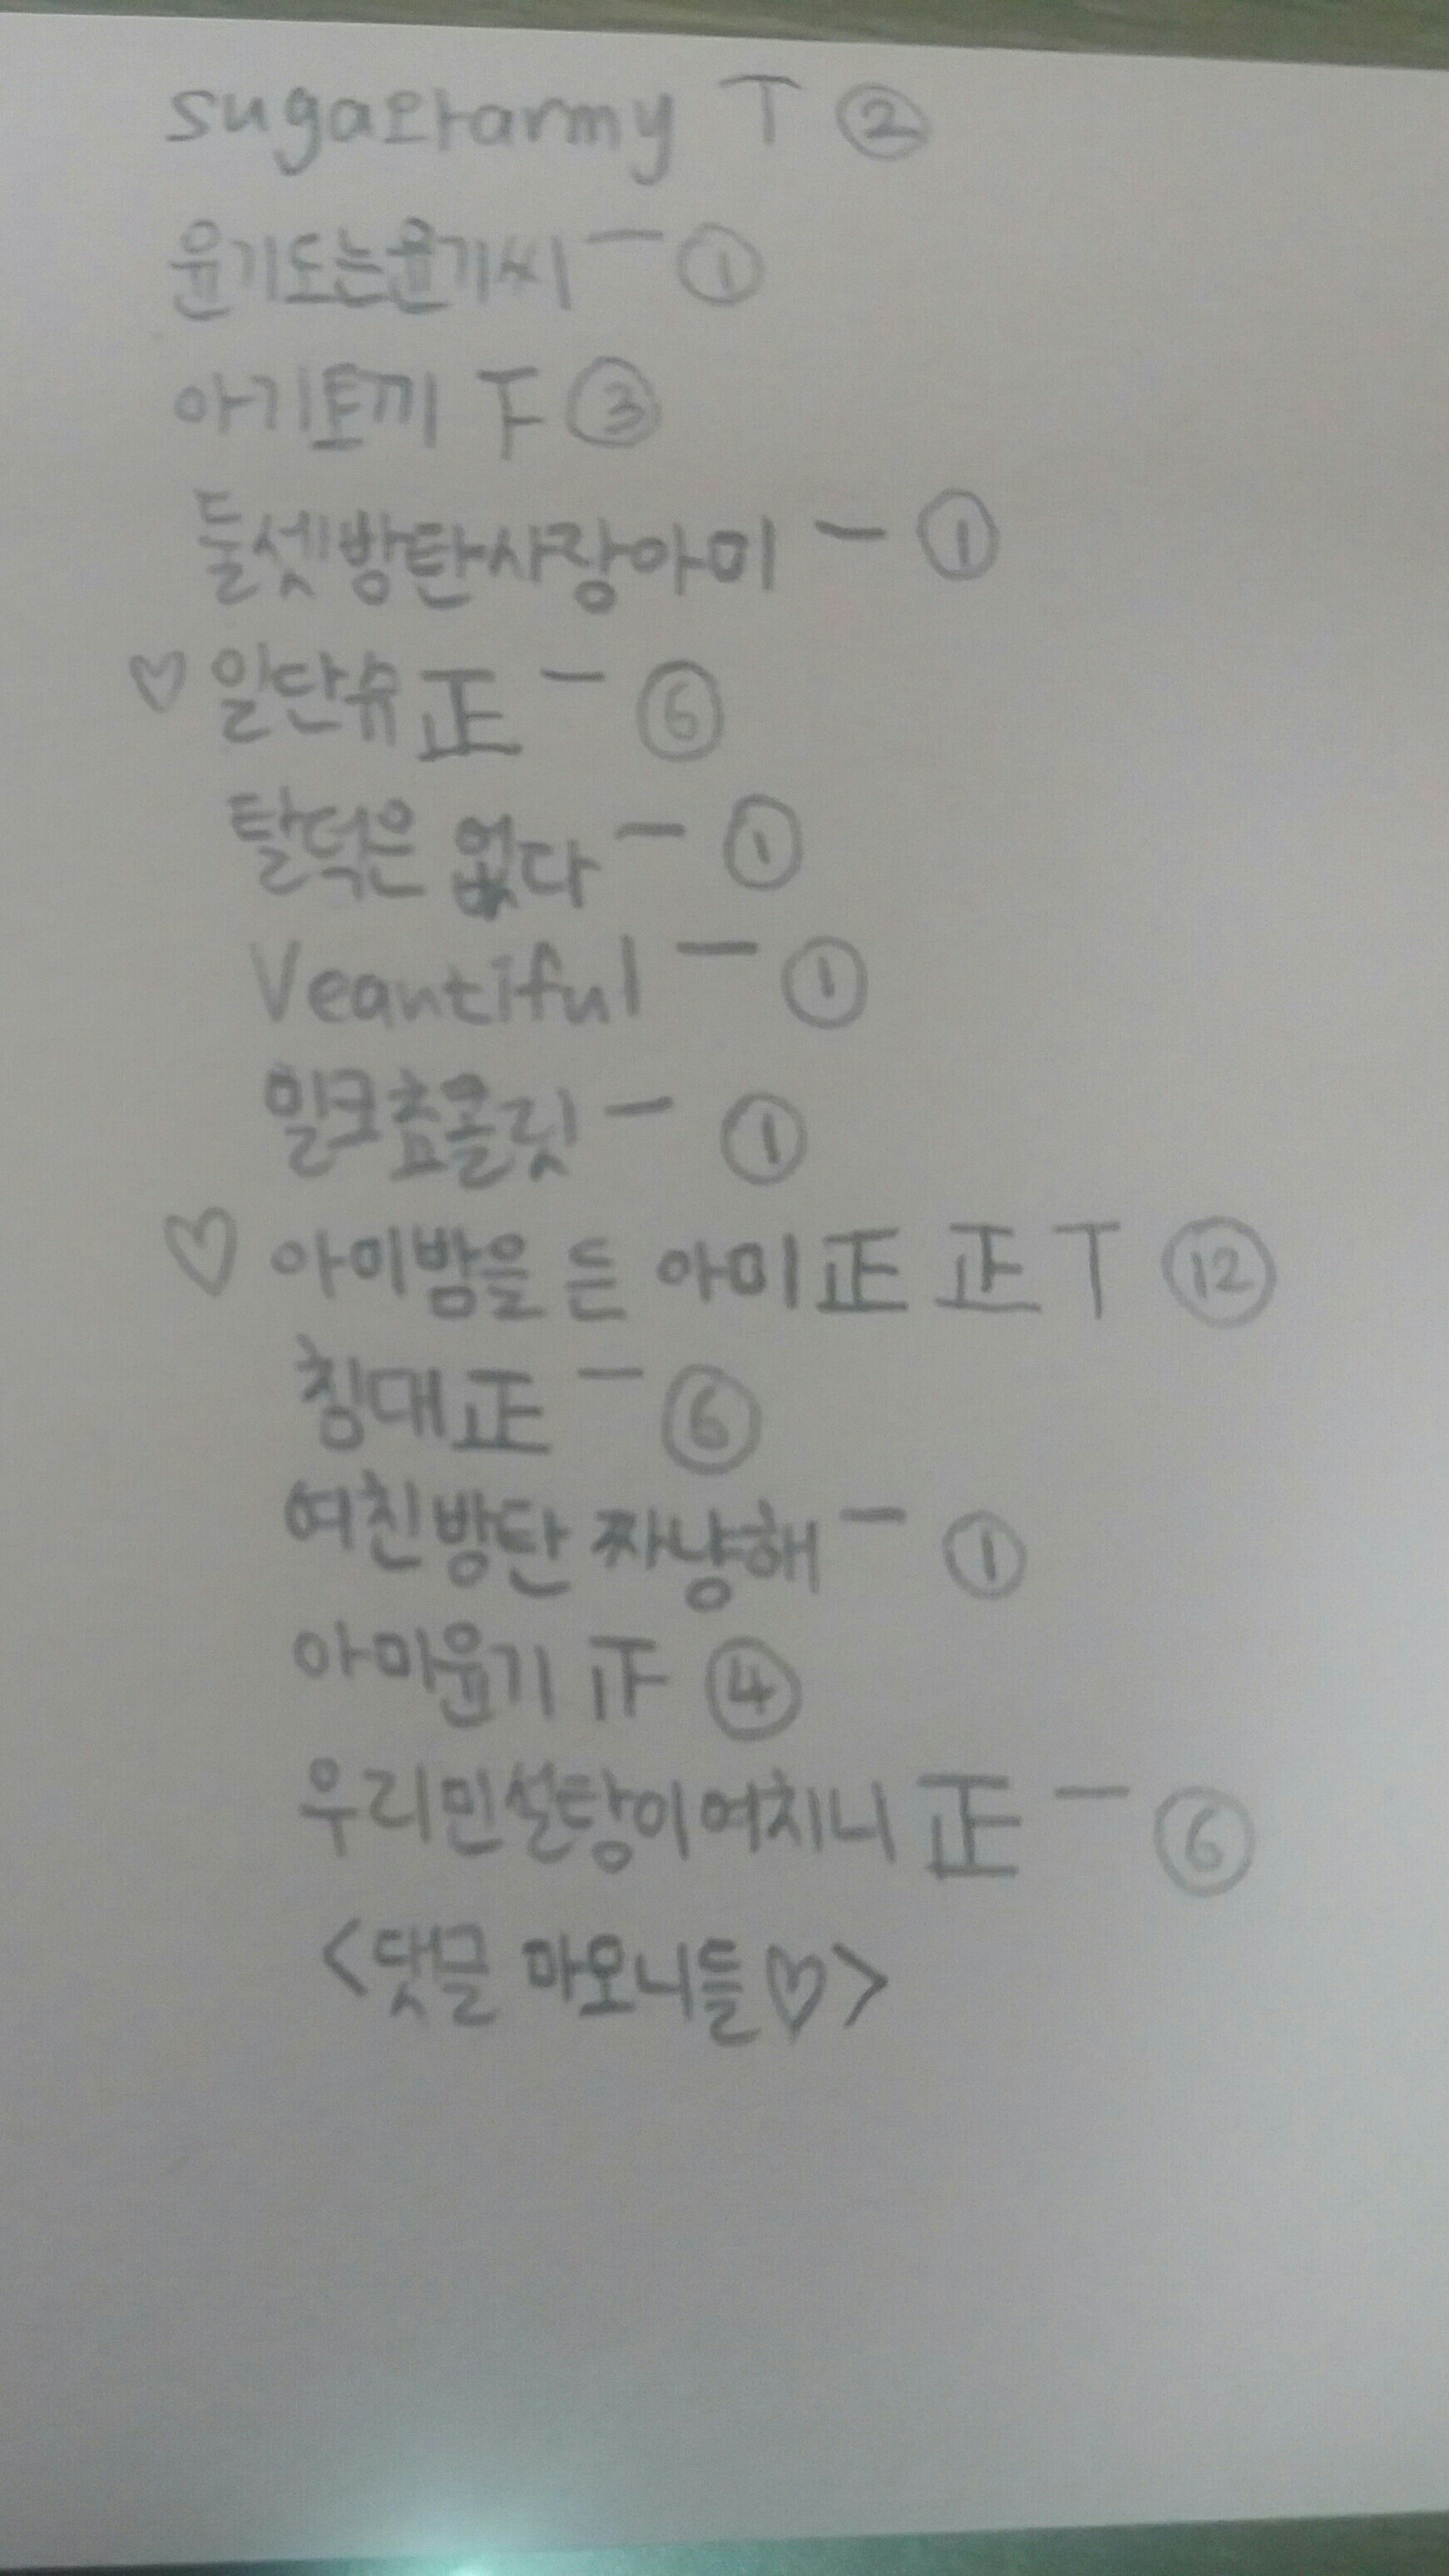 suga와army T ②
윤기도는윤기씨 一 ①
아기토끼 下 ③
둘셋방탄사랑아미 一 ①
♡ 일단슈 正 一 ⑥
탈덕은 없다 一 ①
Veautiful 一 ①
밀크쵸콜릿 一 ①
♡ 아미밤을 든 아미 正 正 T ⑫
침대 正 一 ⑥
여친방탄 짜냥해 一 ①
아미윤기 正 ④
우리민설탕이여치니 正 一 ⑥
<댓글 마오니들♡>